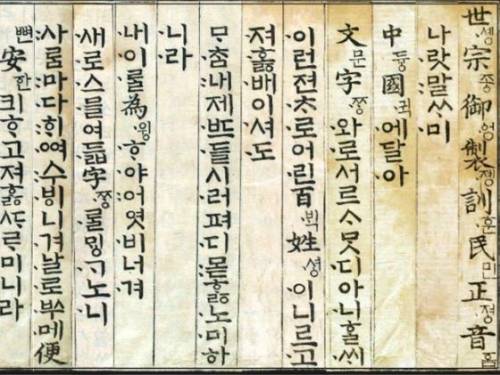 世솅宗종御ᅌᅥᆼ製졩訓훈民민正졍音ᅙᅳᆷ
나랏말ᄊᆞ미
中듕國귁에달아
文문字ᄍᆞᆼ와로서르ᄉᆞᄆᆞᆺ디아니ᄒᆞᆯᄊᆡ
이런젼ᄎᆞ로어린百ᄇᆡᆨ姓셩이니르고
져ᄒᆞᇙ배이셔도
ᄆᆞᄎᆞᆷ내제ᄠᅳ들시러펴디몯ᄒᆞᇙ노미하
니라
내이ᄅᆞᆯ為윙ᄒᆞ야어엿비너겨
새로스믈여듧字ᄍᆞᆼᄅᆞᆯᄆᆡᇰᄀᆞ노니
사ᄅᆞᆷ마다ᄒᆡᅇᅧ수ᄫᅵ니겨날로ᄡᅮ메便
뼌安ᅙᅡᆫ킈ᄒᆞ고져ᄒᆞᇙᄯᆞᄅᆞ미니라